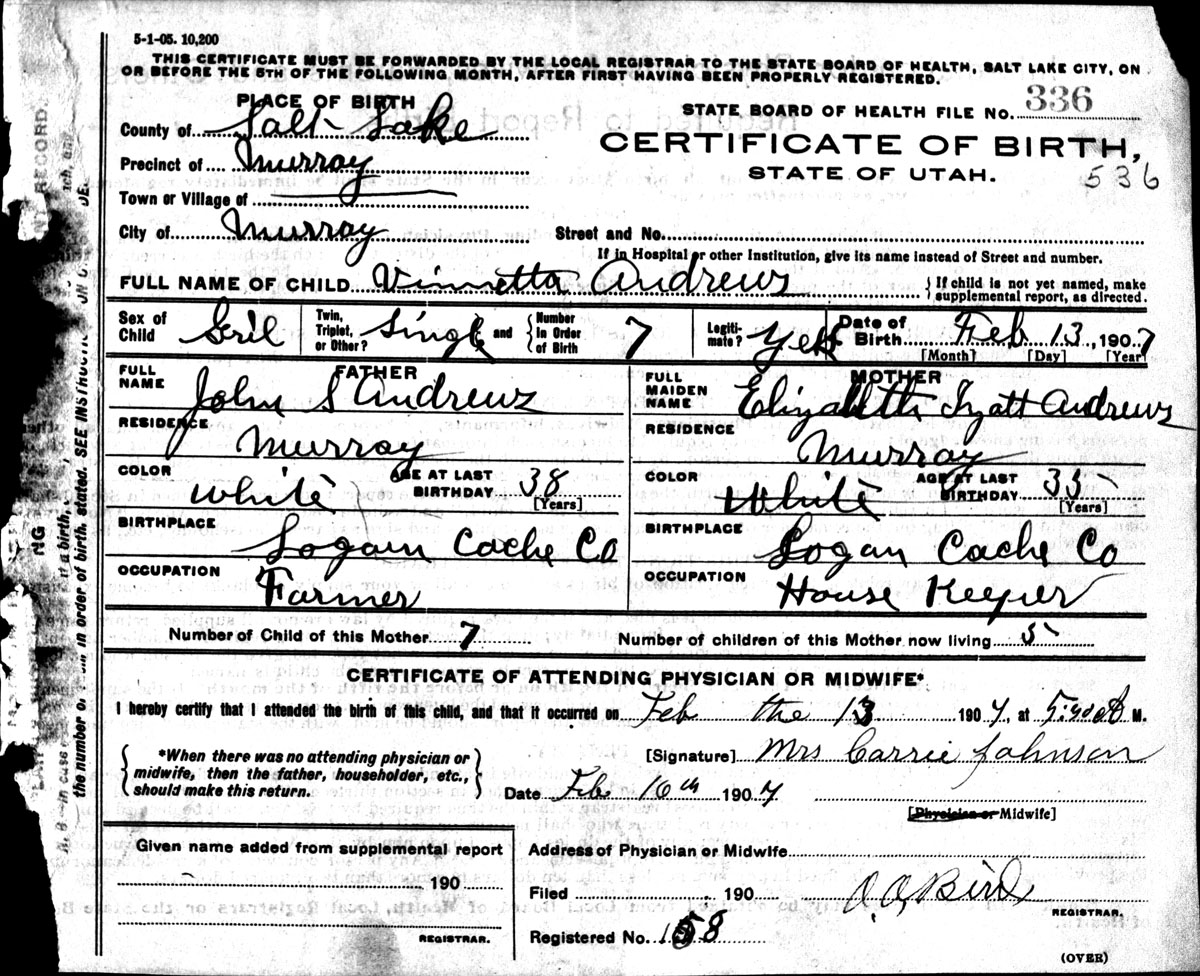 5-1-05. 10,200
THIS CERTIFICATE MUST BE FORWARDED BY THE LOCAL REGISTRAR TO THE STATE BOARD OF HEALTH, SALT LAKE CITY, ON
OR BEFORE THE 5TH OF THE FOLLOWING MONTH, AFTER FIRST HAVING BEEN PROPERLY REGISTERED.
PLACE OF BIRTH
County of Salt Lake
Precinct of Murray
Town or Village of
City of Murray
STATE BOARD OF HEALTH FILE No. 336
CERTIFICATE OF BIRTH,
STATE OF UTAH.
536
Street and No.
If in Hospital or other Institution, give its name instead of Street and number.
FULL NAME OF CHILD Vinnetta Andrews
If child is not yet named, make
supplemental report, as directed.
Sex of Child Gril
Twin, Triplet, or Other? Single and Number in Order of Birth 7
Legiti-mate? Yes
Date of Birth Feb 13, 1907
[Month] [Day] [Year]
FATHER
FULL NAME John S Andrews
RESIDENCE Murray
COLOR White AGE AT LAST BIRTHDAY 38
[Years]
BIRTHPLACE Logan Cache Co
OCCUPATION Farmer
MOTHER
FULL MAIDEN NAME Elizabeth Andrews
RESIDENCE Murray
COLOR White AGE AT LAST BIRTHDAY 35
[Years]
BIRTHPLACE Logan Cache Co
OCCUPATION House Keeper
Number of Child of this Mother 7 Number of children of this Mother now living 5
CERTIFICATE OF ATTENDING PHYSICIAN OR MIDWIFE*
I hereby certify that I attended the birth of this child, and that it occurred on Feb the 13 1907, at M.
*When there was no attending physician or
midwife, then the father, householder, etc.,
should make this return.
[Signature] Mrs Carrie Johnson
Date Feb 16th 1907
[Physician or Midwife]
Given name added from supplemental report
190
REGISTRAR.
Address of Physician or Midwife
Filed 190 Bird
REGISTRAR.
Registered No. 158
(OVER)